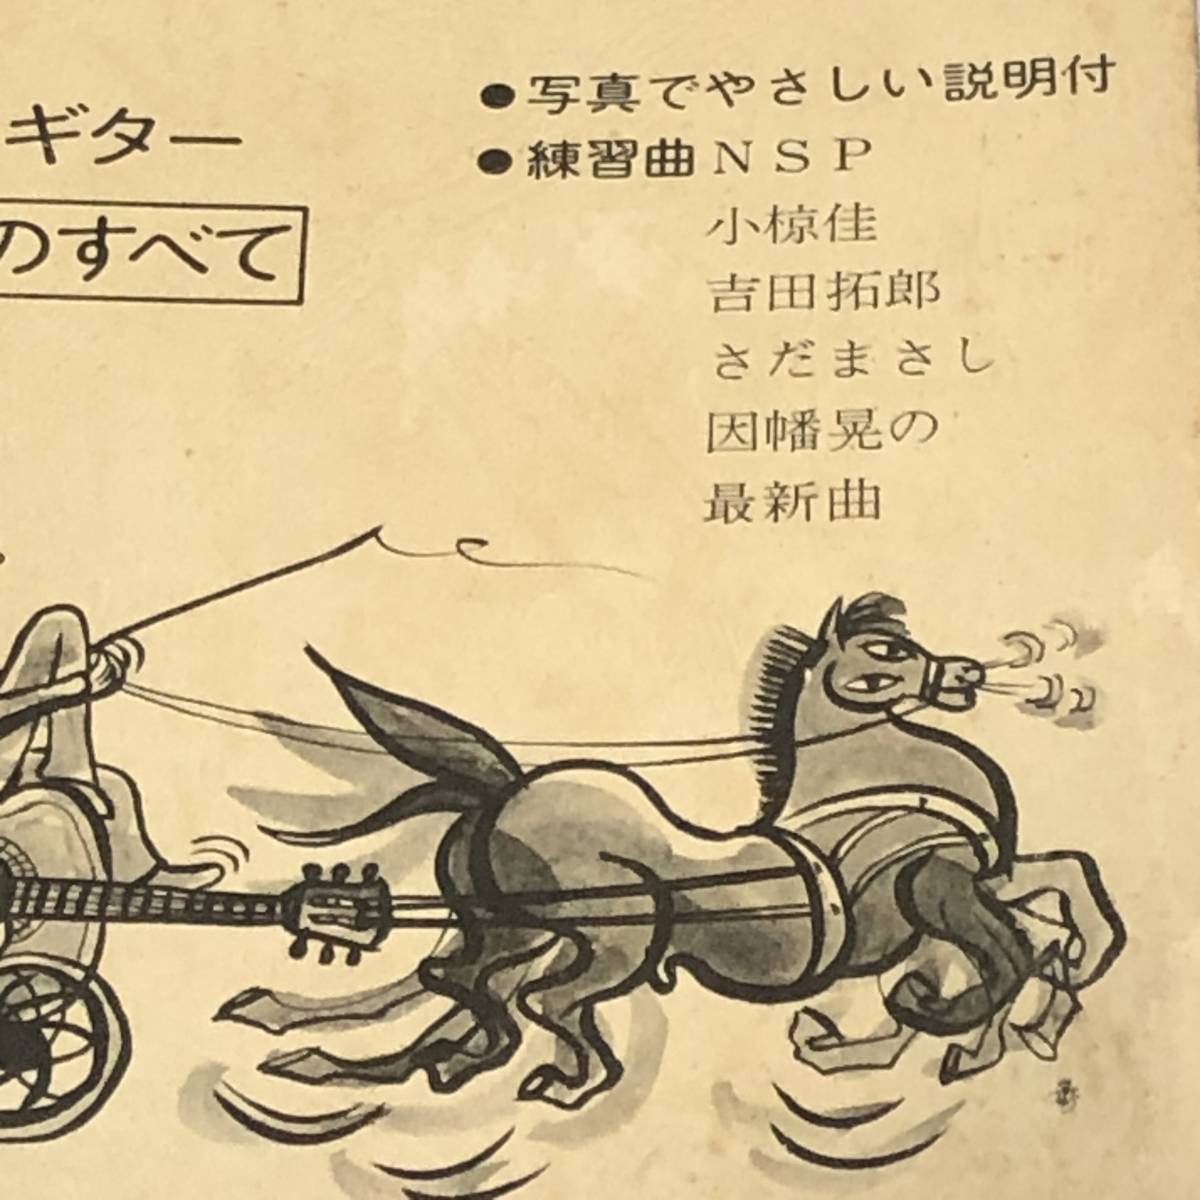 ギター
のすべて
●写真でやさしい説明付
●練習曲NSP
小椋佳
吉田拓郎
さだまさし
因幡晃の
最新曲